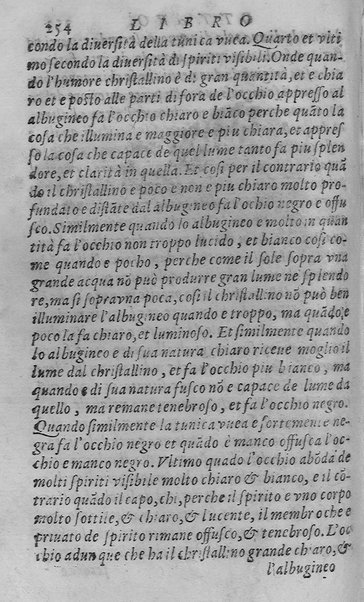 254 LIBRO
condo la diuersità della tunica vuea. Quarto et vlti
mo secondo la diuersità di spiriti visibili. Onde quan-
do l'humore christallino è di gran quantità, et e chia
ro et e posto alle parti di fora de l'occhio appresso al
albugineo fa l'occhio chiaro e biāco perche quāto la
cosa che illumina e maggiore e piu chiara, et appres
so la cosa che capace de quel lume tanto fa piu splen
dore, et clarità in quella. Et cosi per il contrario quā
do il christallino e poco e non e piu chiaro molto pro-
fundato e distāte dal albugineo fa l'ochio negro e offu
sco. Similmente quando lo albugineo e molto in quan
tità fa l'occhio non troppo lucido, et bianco cosi co-
me quando e pocho, perche come il sole sopra vna
grande acqua nō può produrre gran lume ne splendo
re, ma si sopra vna poca, così il christallino nō può ben
illuminare l'albugineo quando e troppo, ma quādo e
poco la fa chiaro, et luminoso. Et similmente quando
lo albugineo e di sua natura chiaro riceue moglio il
lume dal christallino, et fa l'occhio piu bianco, ma
quando e di sua natura fusco nō e capace de lume da
quello, ma remane tenebroso, et fa l'occhio negro.
Quando similmente la tunica vuea e fortemente ne-
gra fa l'occhio negro et quādo è manco offusca l'oc-
chio e manco negro. Vltimo quādo l'occhio abōda de
molti spiriti visibile molto chiaro & bianco, e il cō
trario quādo il capo, chi, perche il spirito e vno corpo
molto sottile, & chiaro, & lucente, il membro che e
priuato de spirito rimane offusco, & tenebroso. L'oc
chio adunque che ha il christallino grande chiaro, &
l'albugineo